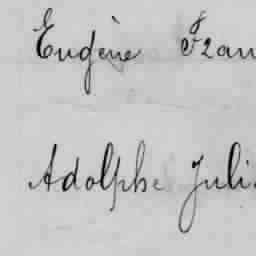 Eugène Fran
Adolphe Juli